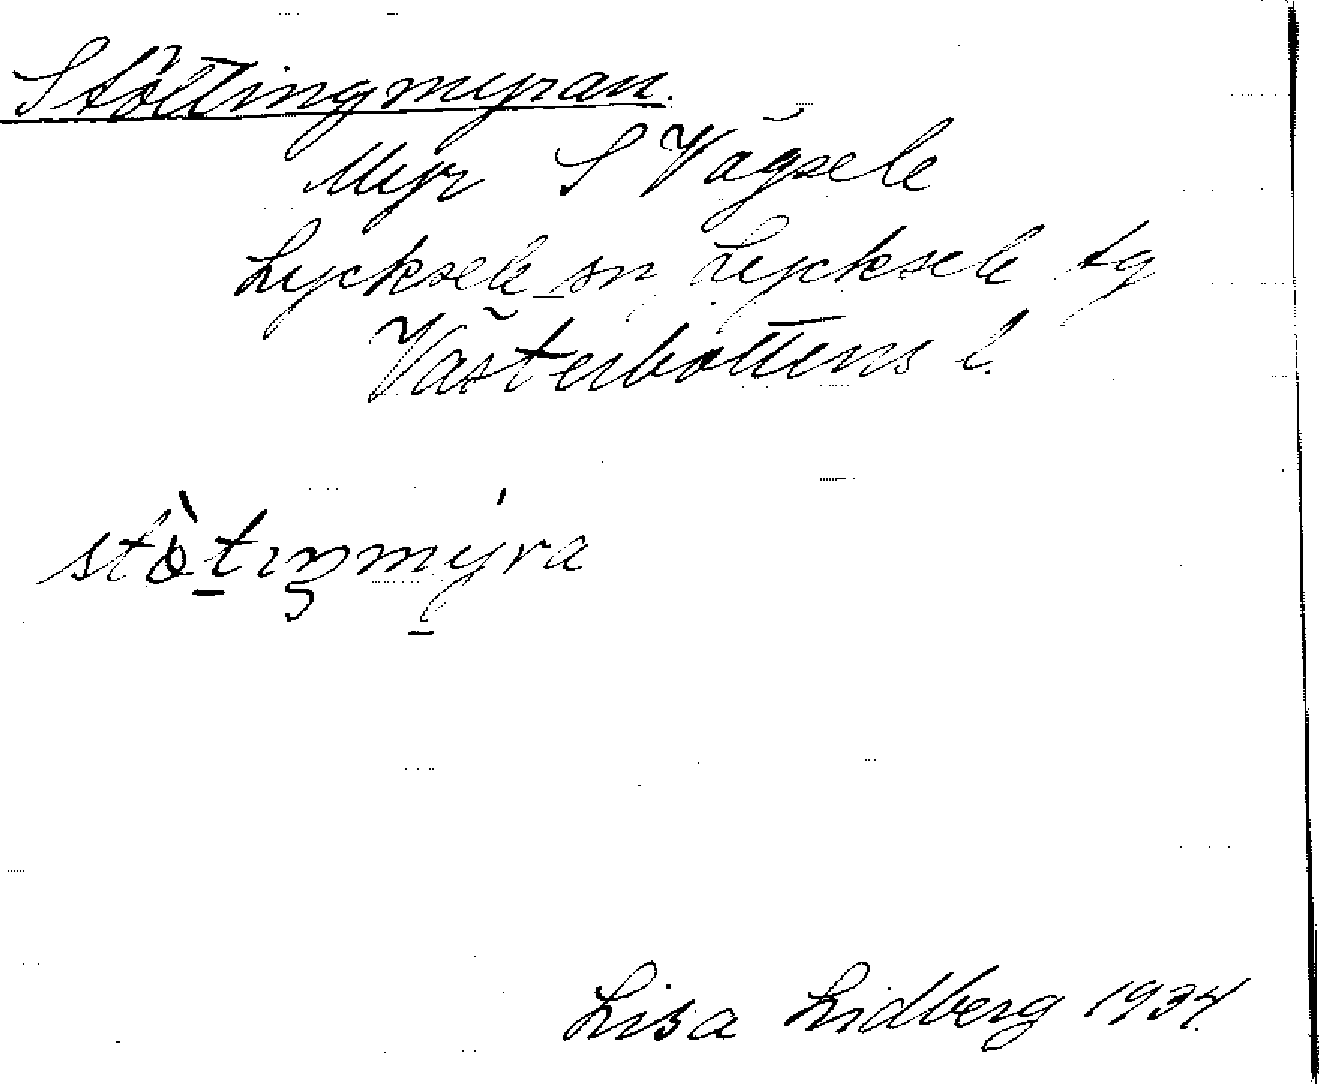 Stöttingmyran.
Myr S Vägsele
Lycksele sn, Lycksele tg
Västerbottens l.
stò̱tıŋmý̱ra
Lisa Lidberg 1934.